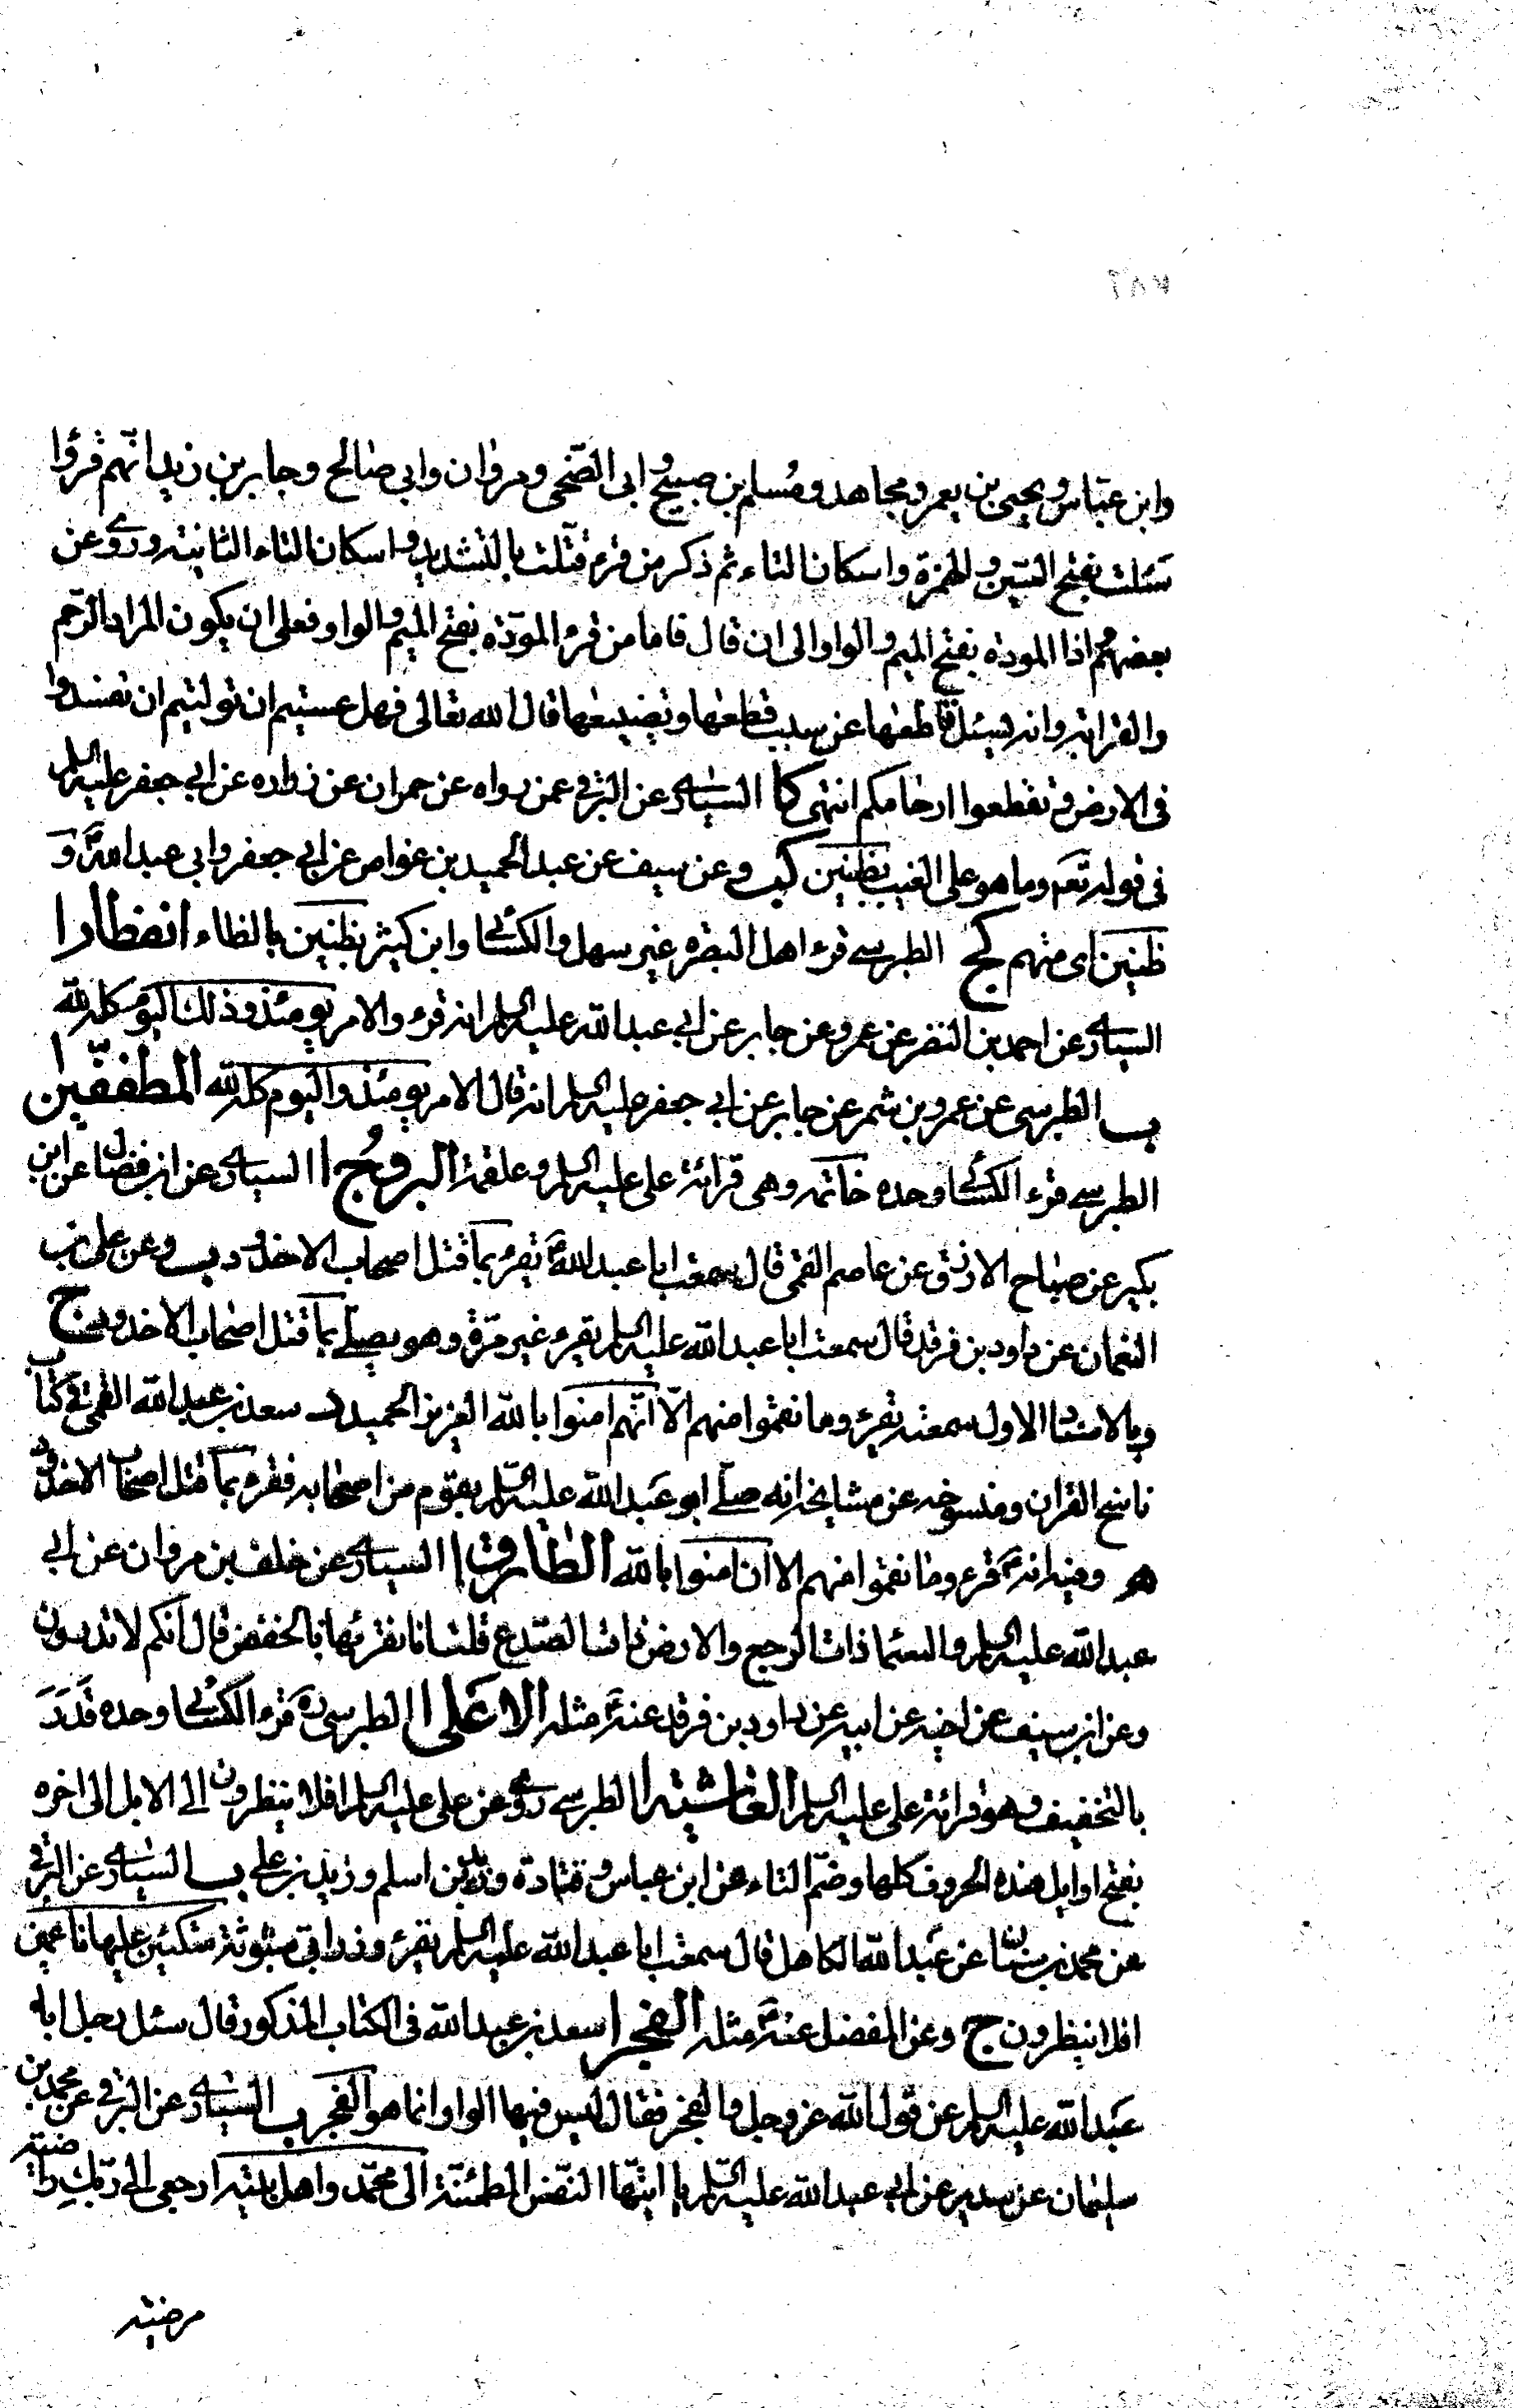 وابن عباس ويحيى بن يعمر ومجاهد ومسلم بن صبيح وابى الضحى ومروان وابى صالح وجابر بن زيد انهم قرؤا
سئلت بفتح السين والهمزة واسكان التاء ثم ذكر من قرء قتلت بالتشديد واسكان التاء الثانية وروى عن
بعضهم اذا المودة بفتح الميم والواو الى ان قال فاما من قرء المودة بفتح الميم والواو فعلى ان يكون المراد الرحم
والقرابة وانه يسئل قاطعها عن سبب قطعها وتضييعها قال الله تعالى فهل عسيتم ان توليتم ان تفسدوا
فى الارض وتقطعوا ارحامكم انتهى كا السيارى عن البرقى عمن رواه عن حمران عن زراره عن ابى جعفر عليه السلم
فى قوله تعم وما هو على الغيب بظنين كب وعن سيف عن عبد الحميد بن عواص عن ابى جعفر وابى عبد الله ع
ظنين اى متهم كج الطبرسى قرء اهل البصره غير سهل والكسائى وابن كثير بظنين بالظاء انفطار ا
السيارى عن احمد بن النضر عن عمرو عن جابر عن ابى عبد الله عليه السلم انه قرء والامر يومئذ وذلك اليوم كله لله
ب الطبرسى عن عمرو بن شمر عن جابر عن ابى جعفر عليه السلم انه قال الامر يومئذ واليوم كله لله المطففين ا
الطبرسى قرء الكسائى وحده خاتمه وهى قرائة على عليه السلم وعلقمة البروج ا السيارى عن ابن فضال عن ابن
بكير عن صباح الازرق عن عاصم القمى قال سمعت ابا عبد الله ع يقرء بما قتل اصحاب الاخدود ب وعن على بن
النعمان عن داود بن فرقد قال سمعت ابا عبد الله عليه السلم يقرء غير مرة وهو يصلى بما قتل اصحاب الاخدود ج
وبالاسناد الاول سمعته يقرء وما نقموا منهم الا انهم امنوا بالله العزيز الحميد د سعد بن عبد الله القمى فى كتاب
ناسخ القران ومنسوخه عن مشايخه انه صلى ابو عبد الله عليه السلم بقوم من اصحابه فقرء بما قتل اصحاب الاخدود
هـ وفيه انه ع قرء وما نقموا منهم الا ان امنوا بالله الطارق ا السيارى عن خلف بن مروان عن ابى
عبد الله عليه السلم والسماء ذات الرجع والارض ذات الصدع قلت انا نقرئها بالخفض قال انكم لا تدرون
وعن ابن سيف عن اخيه عن ابيه عن داود بن فرقد عنه ع مثله الاعلى ا الطبرسى ره قرء الكسائى وحده قدر
بالتخفيف وهو قرائة على عليه السلم الغاشية ا الطبرسى روى عن على عليه السلم افلا ينظرون الى الابل الى اخره
بفتح اوايل هذه الحروف كلها وضم التاء عن ابن عباس وقتادة وزيد بن اسلم وزيد بن على ب السيارى عن البرقى
عن محمد بن سنان عن عبد الله الكاهل قال سمعت ابا عبد الله عليه السلم يقرء وزرابى مبثوثة متكئين عليها ناعمين
افلا ينظرون ج وعن المفضل عنه ع مثله الفجر ا سعد بن عبد الله فى الكتاب المذكور قال سئل رجل ابا
عبد الله عليه السلم عن قول الله عز وجل والفجر فقال ليس فيها الواو انما هو الفجر ب السيارى عن البرقى عن محمد بن
سليمان عن سدير عن ابى عبد الله عليه السلم يا ايتها النفس المطمئنة الى محمد واهل بيته ارجعى الى ربك راضية
مرضية